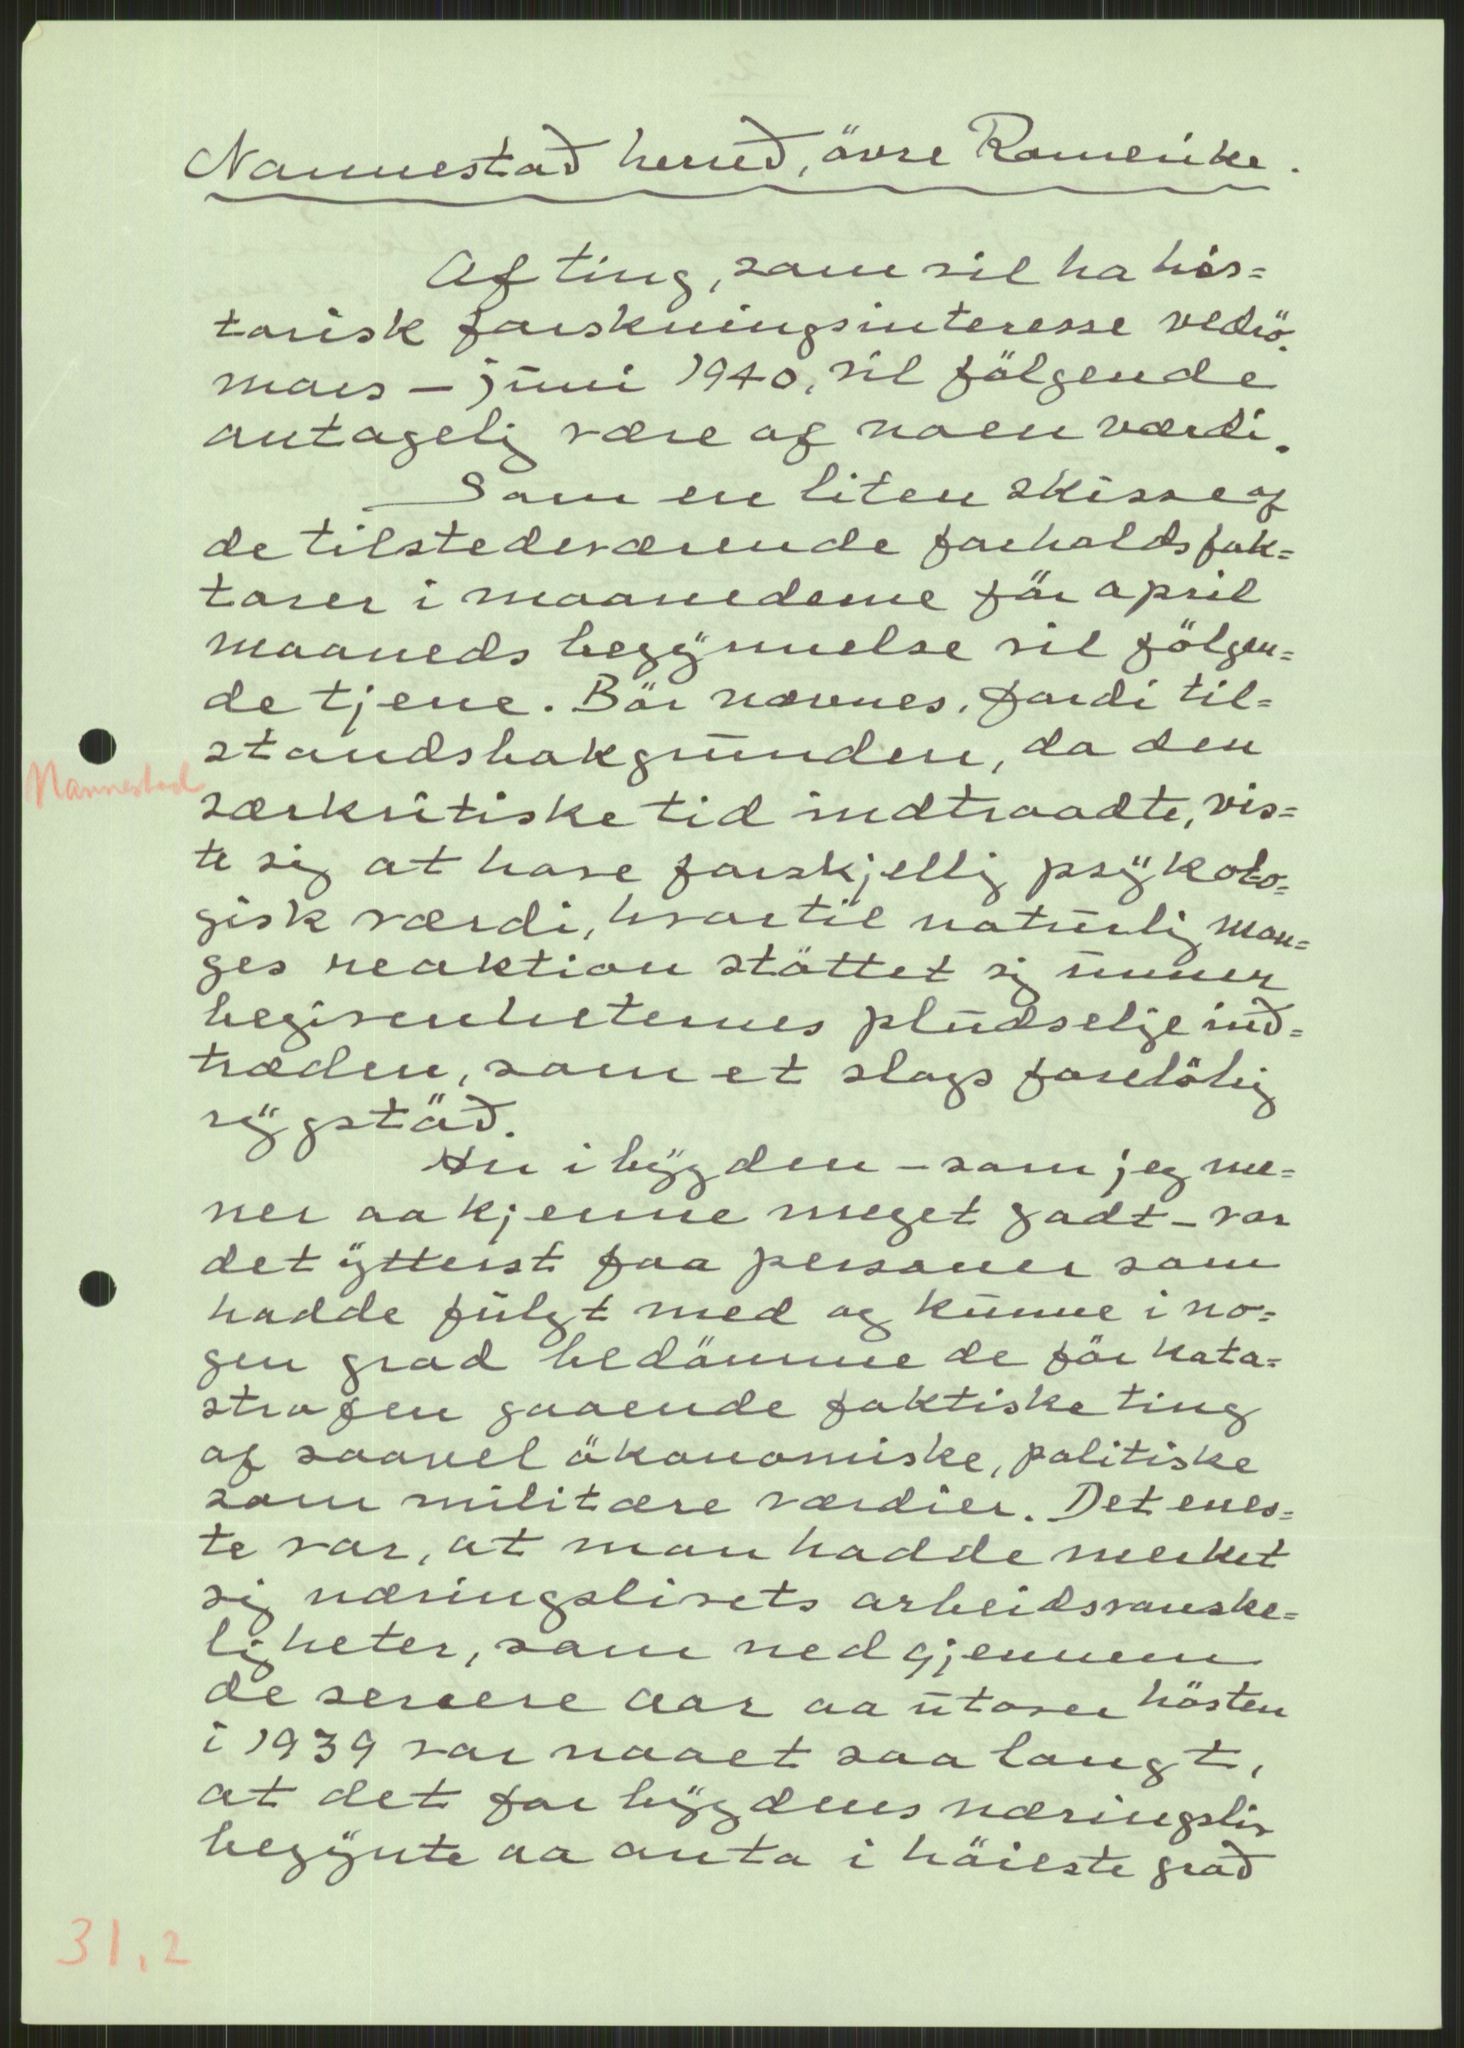 Nannestad herred, övre Romerike.
Af ting, som vil ha his=
torisk forskningsinteresse vedrö.
mars – juni 1940, vil fölgende
antagelig være af noen værdi.
Som en liten skisse af
de tilstedeværende forholdsfak=
torer i maanederne för april
maaneds begynnelse vil fölgen=
de tjene. Bör nævnes, fordi til=
standsbakgrunden, da den
Nannestad
særkritiske tid indtraadte, vis=
te sig at have forskjellig psykolo=
gisk værdi, hvortil naturlig man=
ges reaktion stöttet sig under
begivenheternes pludselige ind=
træden, som et slags forelöbig
rygstöd.
Her i bygden – som jeg me=
ner aa kjenne meget godt – var
det ytterst faa personer som
hadde fulgt med og kunne i no=
gen grad bedömme de för kata=
strofen gaaende faktiske ting
af saavel ökonomiske, politiske
som militære værdier. Det enes=
te var, at man hadde merket
sig næringslivets arbeidsvanske=
ligheter, som ned gjennem
de senere aar aa utover hösten
i 1939 var naaet saa langt,
at det for bygdens næringsliv
begynte aa anta i höieste grad
31,2